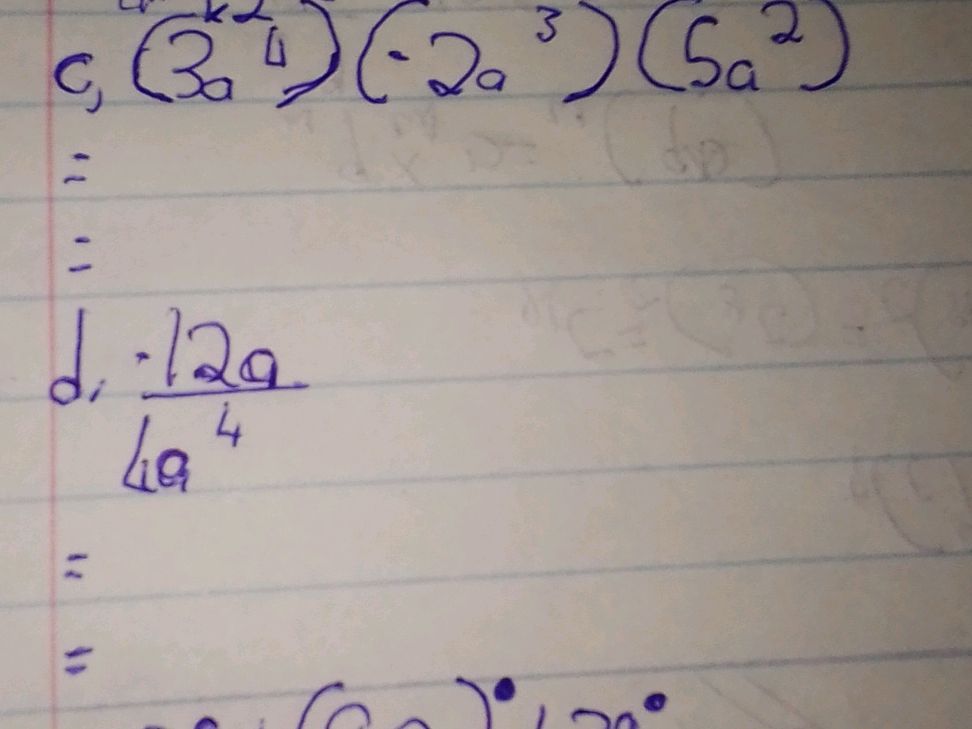 c, (3a⁴)(-2a³)(5a²)
=
=
d, -12a
4a⁴
=
=